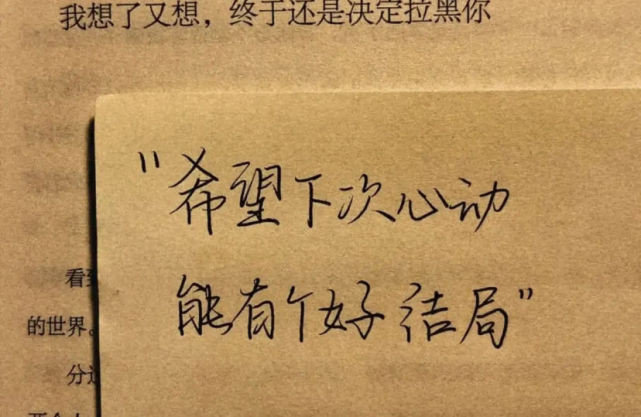 我想了又想，终于还是决定拉黑你
"希望下次心动
能有个好结局"
看到
的世界。
分